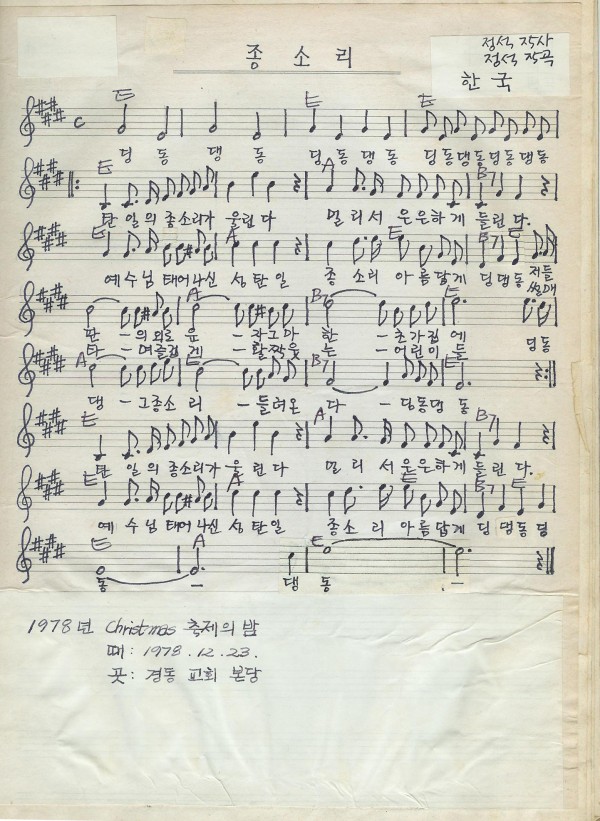 종소리
정석 작사
정석 작곡
한국
E E E
C
딩 동 댕 동 딩동댕동 딩동댕동딩동댕동
E A B7
탄일의종소리가 울린다 멀리서 은은하게 들린다.
E A E B7
예수님 태어나신 성탄일 종소리 아름답게 딩댕동 저들
썰매
A B7 E
판 - 의외로운 - 자그마한 - 초가집에 딩동
타 - 며즐겁게 - 활짝웃는 - 어린이들
A B7 E
댕 - 그종소리 - 들려온다 - 딩동댕동
E A B7
탄일의종소리가 울린다 멀리서은은하게 들린다.
E A E B7 E
예수님태어나신 성탄일 종소리 아름답게 딩댕동딩
E A E
동 - 댕 동 -
1978년 Christmas 축제의 밤
때: 1978.12.23.
곳: 경동 교회 본당